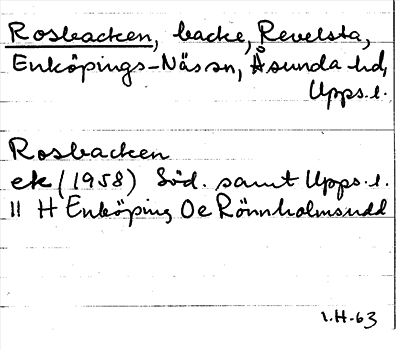 Rosbacken, backe, Revelsta,
Enköpings-Näs sn, Åsunda hd,
Upps. l.
Rosbacken
ek (1958) Söd. samt Upps. l.
11 H Enköping Oe Rönnholmsudd
1.H.63